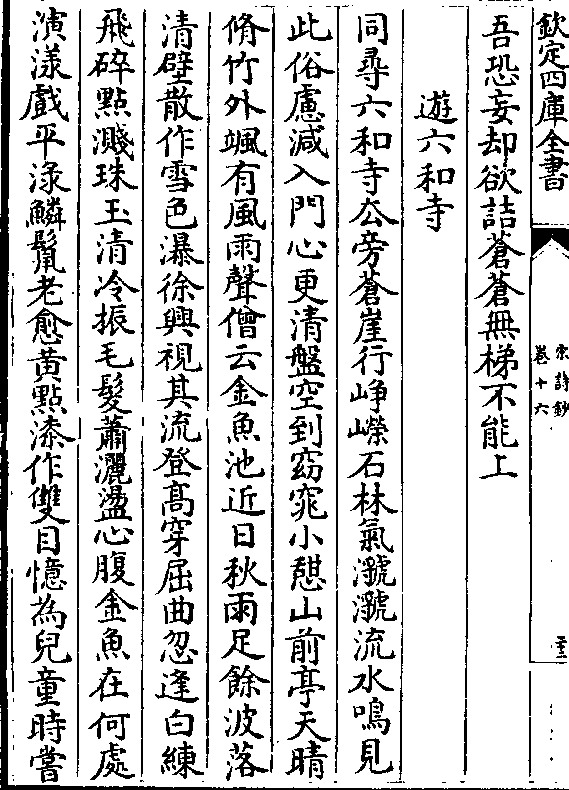 欽定四庫全書
宋詩鈔
卷十六
吾恐妄却欲詰蒼蒼無梯不能上
遊六和寺
同尋六和寺厺旁蒼崖行崢嶸石林氣灝灝流水鳴見
此俗慮減入門心更清盤空到窈窕小憇山前亭天晴
脩竹外颯有風雨聲僧云金魚池近日秋雨足餘波落
清壁散作雪色瀑徐興視其流登髙穿屈曲忽逢白練
飛碎點濺珠玉清冷振毛髮蕭灑盪心腹金魚在何處
演漾戲平淥鱗鬛老愈黄點漆作雙目憶為兒童時嘗